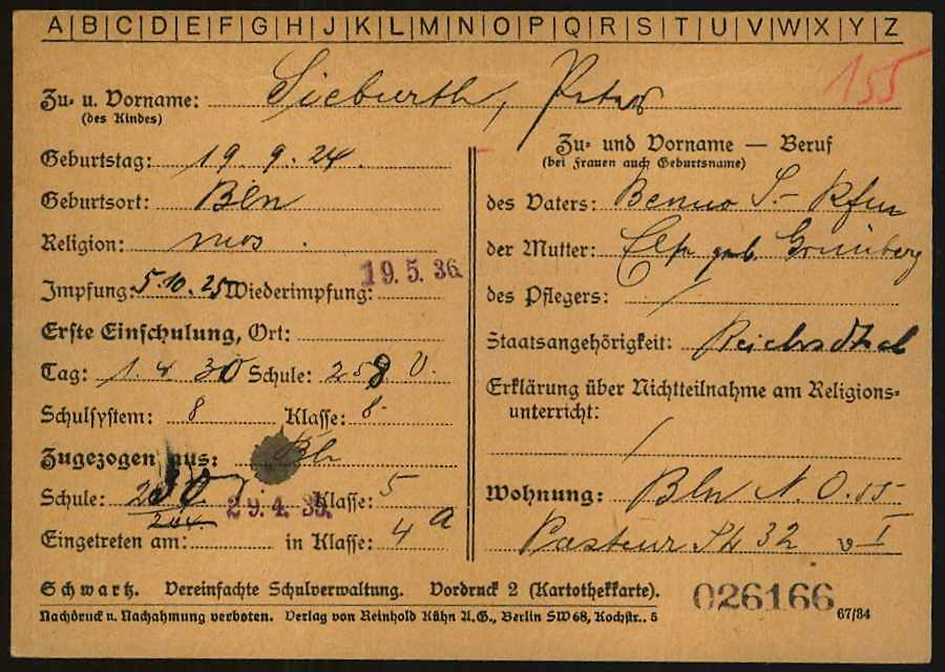 A|B|C|D|E|F|G|H|J|K|L|M|N|O|P|Q|R|S|T|U|V|W|X|Y|Z
155
Zu- u. Vorname: Sieburth, Peter
(des Kindes)
Geburtstag: 19. 9. 24.
Geburtsort: Bln
Religion: mos.
Impfung: 5.10.25 Wiederimpfung: 19.5.36.
Erste Einschulung, Ort:
Tag: 1. 4 30 Schule: 258 V.
Schulsystem: 8 Klasse: 8.
Zugezogen aus: Bln
Schule: 29.4.35. Klasse: 5
204.
Eingetreten am: in Klasse: 4 a
Zu- und Vorname — Beruf
(bei Frauen auch Geburtsname)
des Vaters: Benno S.- Kfm
der Mutter: geb. Grünberg
des Pflegers: /
Staatsangehörigkeit: Reichsdtsch
Erklärung über Nichtteilnahme am Religions-
unterricht:
/
Wohnung: Bln N.O.55
Pasteur Str 32 v I
Schwartz. Vereinfachte Schulverwaltung. Vordruck 2 (Kartothekkarte).
026166
Nachdruck u. Nachahmung verboten. Verlag von Reinhold Kühn A.G., Berlin SW 68, Kochstr. 5
67/34